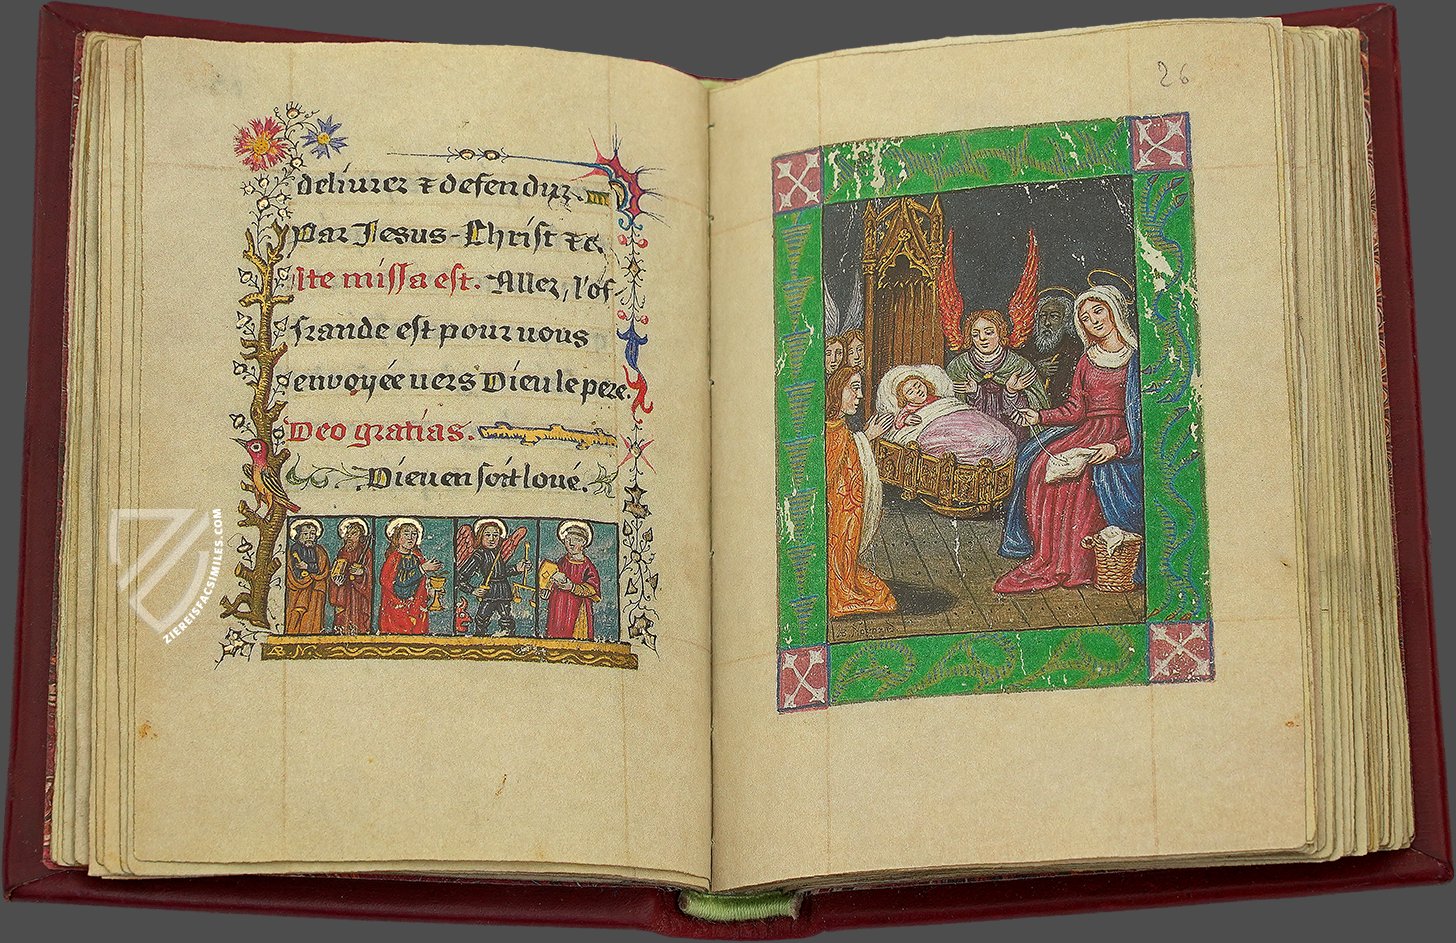 deliurer & defendur.
Par Jesus-Christ &c.
Ite missa est. Allez, l'of-
frande est pour uous
envoyée uers Dieu le pere.
Deo gratias.
Dieu en soit loué.
26
ZIEREISFACSIMILES.COM